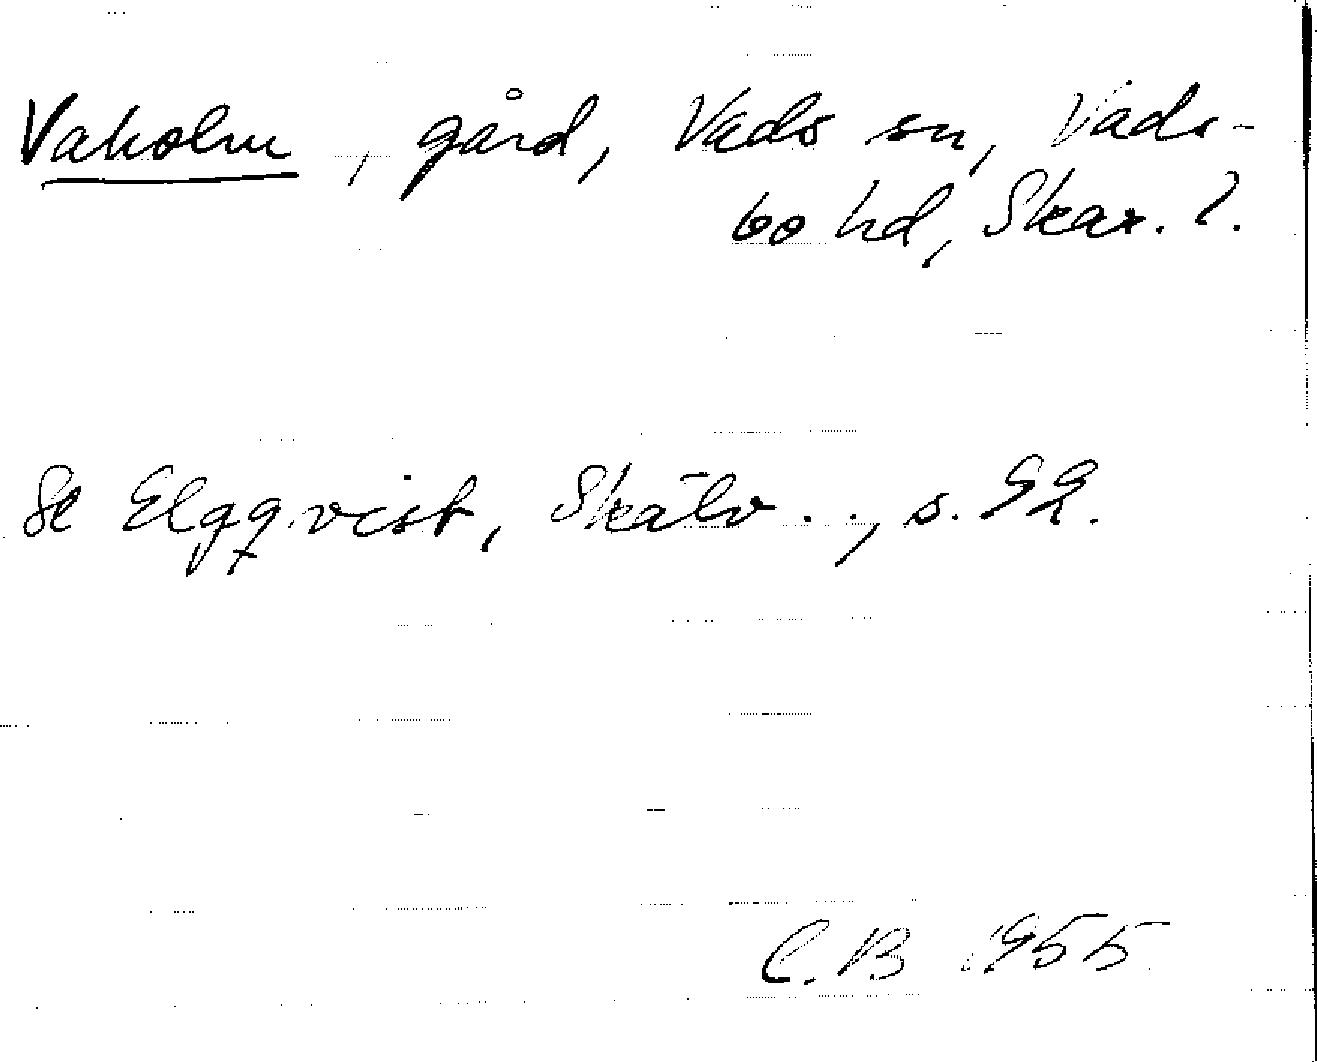 Vaholm, gård, Vads sn, Vads-
bo hd, Skar. l.
Se Elgqvist, Skälv . . , s. 92.
C. B 1955